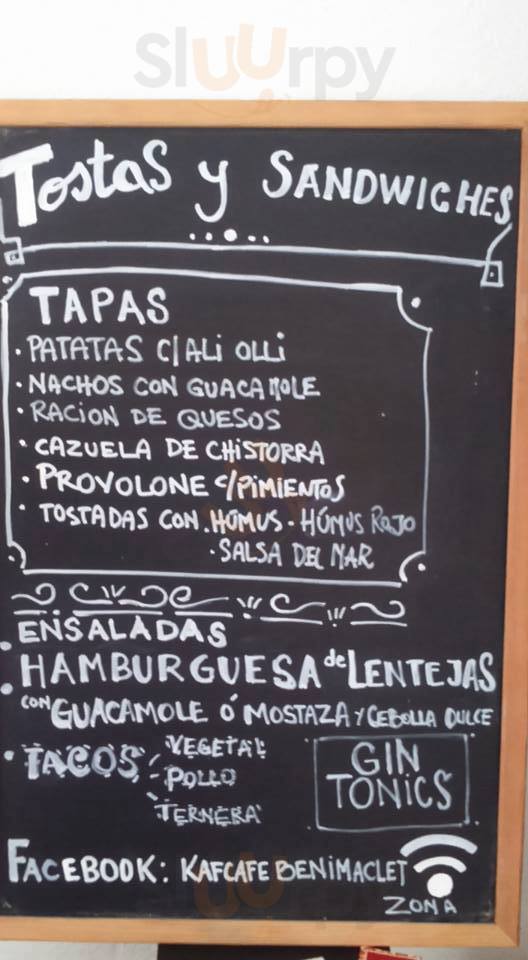 Sluurpy
Tostas y SANDWICHES
TAPAS
· PATATAS C/ ALI OLLI
· NACHOS CON GUACAMOLE
· RACION DE QUESOS
· CAZUELA DE CHISTORRA
· PROVOLONE C/PIMIENTOS
· TOSTADAS CON · HÚMUS · HÚMUS ROJO
· SALSA DEL MAR
· ENSALADAS
· HAMBURGUESA de LENTEJAS
CON GUACAMOLE Ó MOSTAZA Y CEBOLLA DULCE
· TACOS VEGETAL
POLLO
TERNERA
GIN
TONICS
FACEBOOK: KAFCAFE BENIMACLET
ZONA